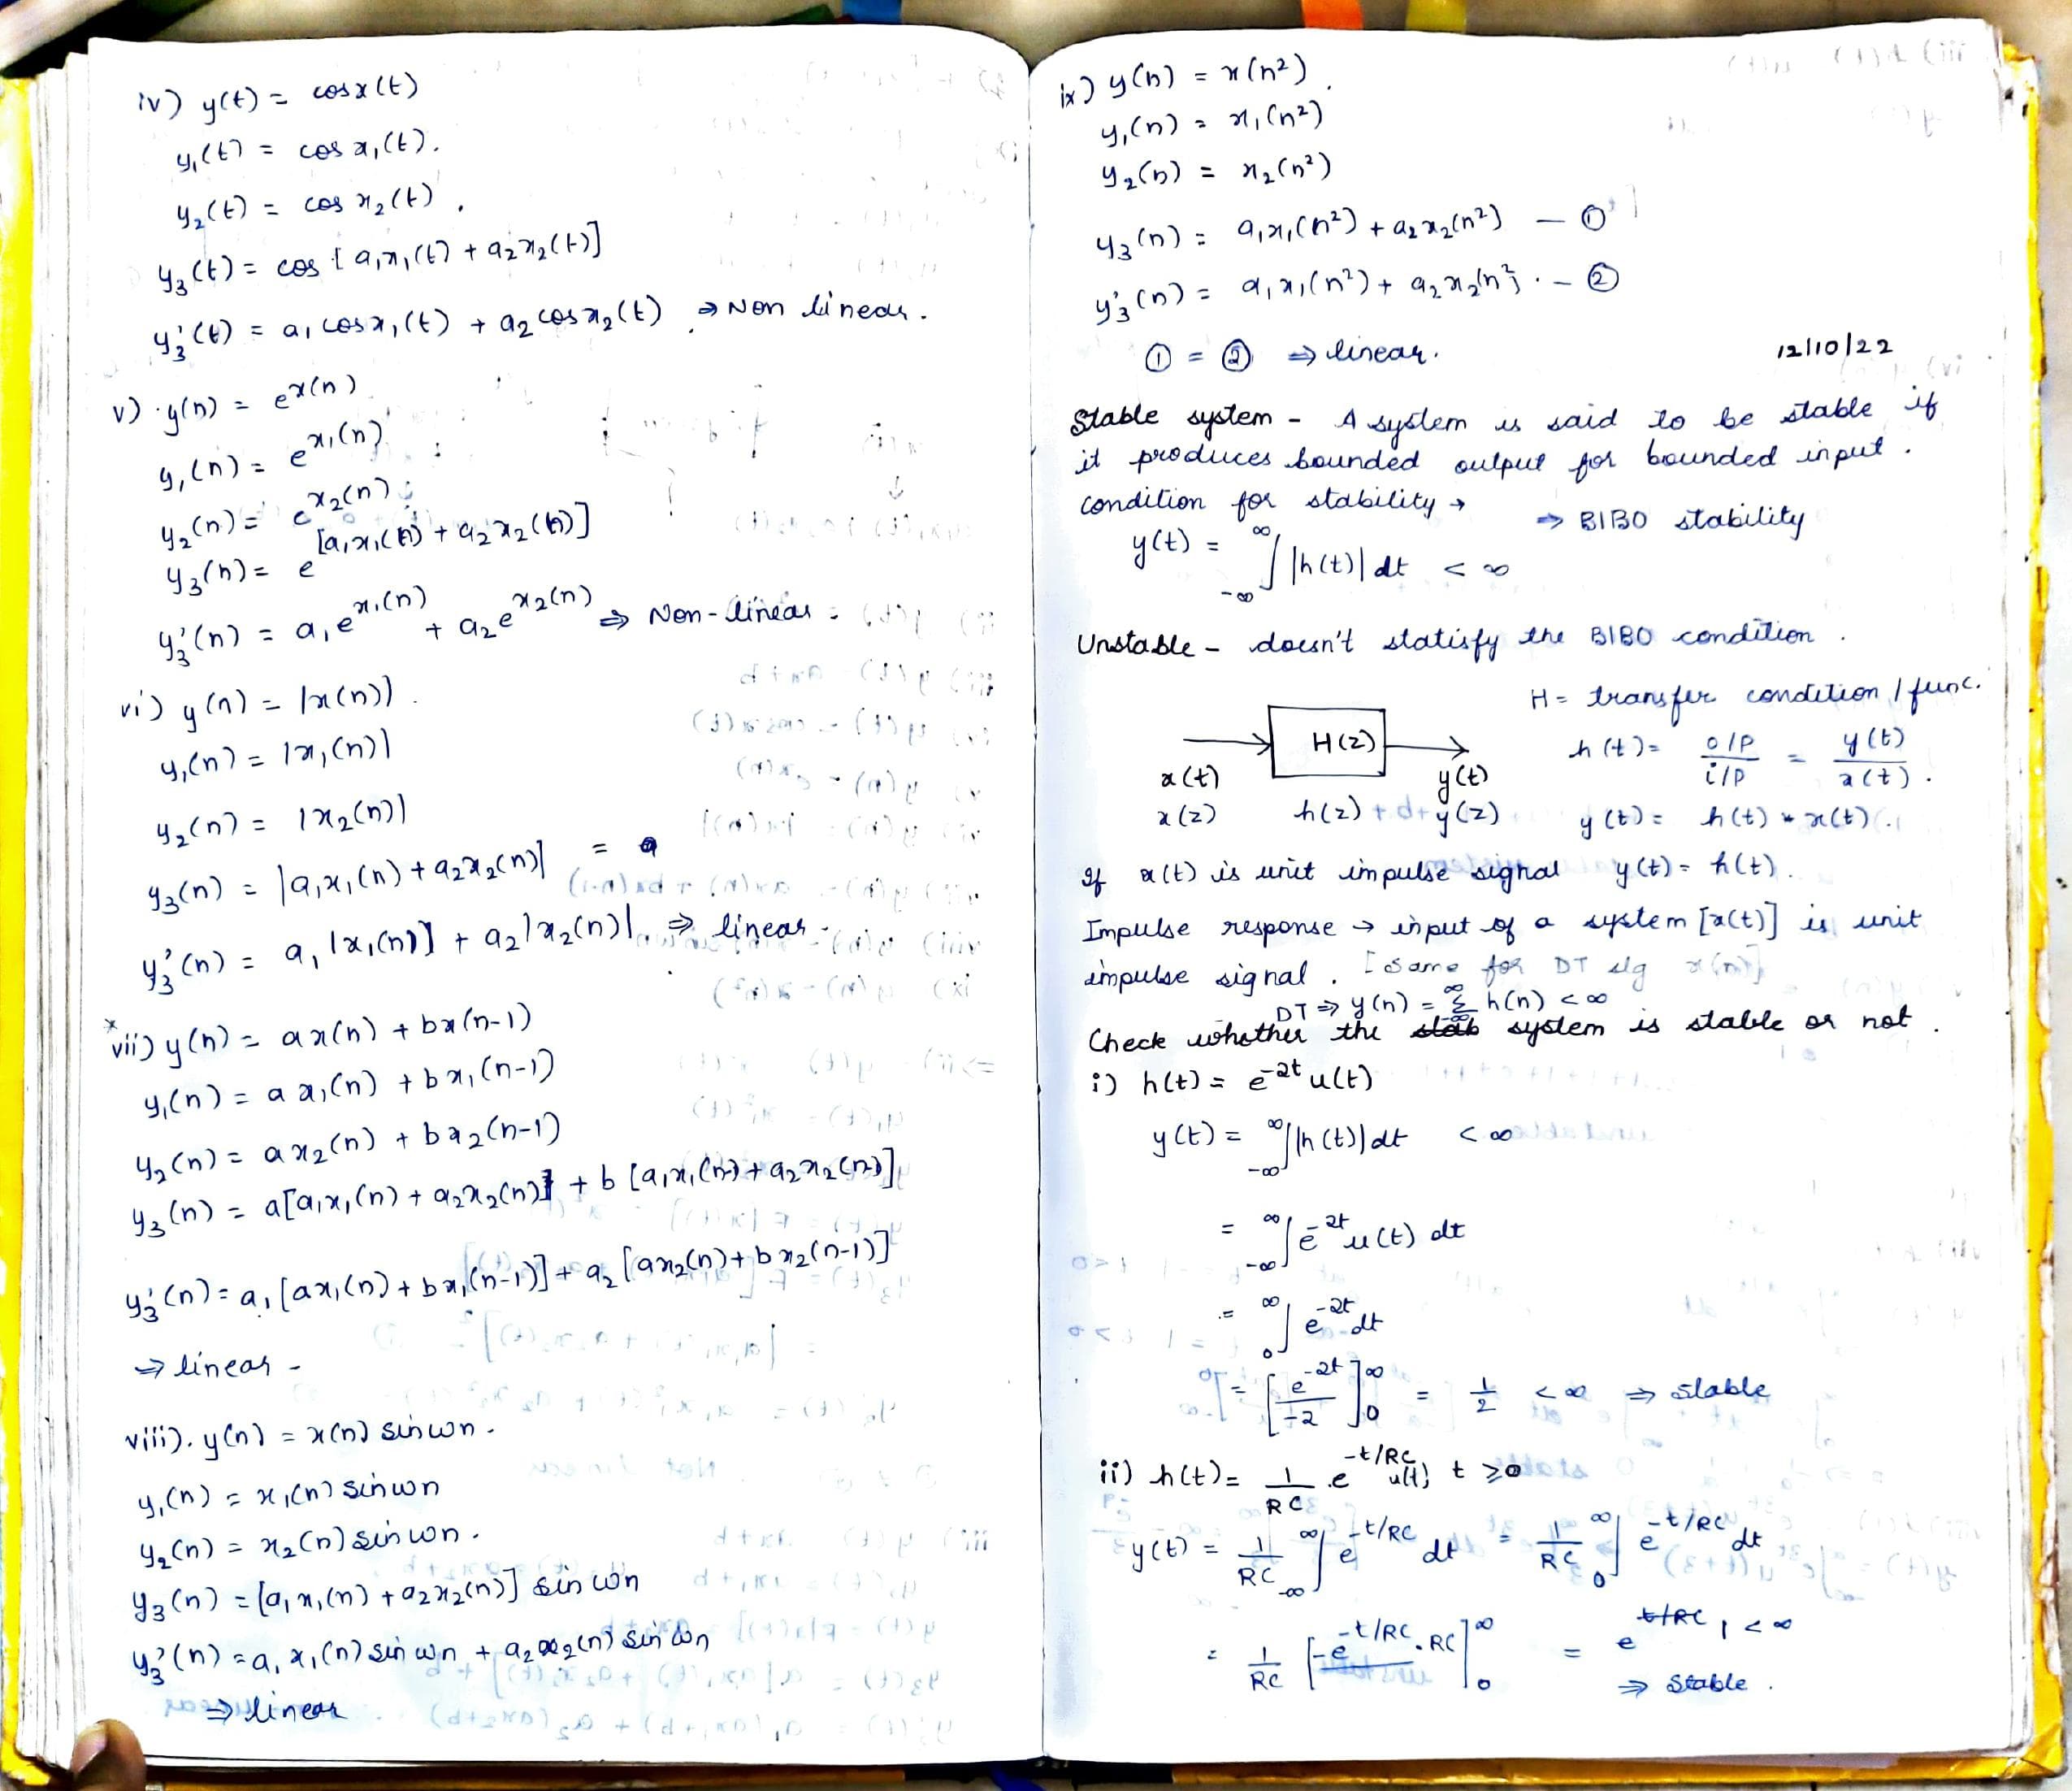 iv) y(t) = cos x(t)
y₁(t) = cos x₁(t).
y₂(t) = cos x₂(t).
y₃(t) = cos [a₁x₁(t) + a₂x₂(t)]
y₃'(t) = a₁ cos x₁(t) + a₂ cos x₂(t) ⇒ Non linear.
v) y(n) = e^x(n)
y₁(n) = e^x₁(n)
y₂(n) = e^x₂(n)
y₃(n) = e^[a₁x₁(n) + a₂x₂(n)]
y₃'(n) = a₁e^x₁(n) + a₂e^x₂(n) ⇒ Non-linear
vi) y(n) = |x(n)|.
y₁(n) = |x₁(n)|
y₂(n) = |x₂(n)|
y₃(n) = |a₁x₁(n) + a₂x₂(n)| =
y₃'(n) = a₁ |x₁(n)| + a₂|x₂(n)|. ⇒ linear
* vii) y(n) = ax(n) + bx(n-1)
y₁(n) = a x₁(n) + bx₁(n-1)
y₂(n) = ax₂(n) + bx₂(n-1)
y₃(n) = a[a₁x₁(n) + a₂x₂(n)] + b [a₁x₁(n) + a₂x₂(n)]
y₃'(n) = a₁ [ax₁(n) + bx₁(n-1)] + a₂ [ax₂(n) + bx₂(n-1)]
⇒ linear -
viii). y(n) = x(n) sin ωn.
y₁(n) = x₁(n) sin ωn
y₂(n) = x₂(n) sin ωn.
y₃(n) = [a₁x₁(n) + a₂x₂(n)] sin ωn
y₃'(n) = a₁x₁(n) sin ωn + a₂x₂(n) sin ωn
⇒ linear
ix) y(n) = x(n²).
y₁(n) = x₁(n²)
y₂(n) = x₂(n²)
y₃(n) = a₁x₁(n²) + a₂x₂(n²) — ①
y₃'(n) = a₁x₁(n²) + a₂x₂(n². — ②
① = ② ⇒ linear.
12/10/22
Stable system - A system is said to be stable if
it produces bounded output for bounded input.
condition for stability → ⇒ BIBO stability
y(t) = ∫_-∞^∞ |h(t)| dt < ∞
Unstable - doesn't statisfy the BIBO condition.
H = transfer condition / func.
H(z)
h(t) = o/p / i/p = y(t) / x(t).
x(t) y(t)
x(z) h(z) y(z) y(t) = h(t) * x(t).
If x(t) is unit impulse signal y(t) = h(t).
Impulse response → input of a system [x(t)] is unit
impulse signal. [same for DT sig x(n)]
DT ⇒ y(n) = Σ_-∞^∞ h(n) < ∞
Check whether the system is stable or not.
i) h(t) = e^-2t u(t)
y(t) = ∫_-∞^∞ |h(t)| dt < ∞
= ∫_-∞^∞ e^-2t u(t) dt
= ∫_0^∞ e^-2t dt
= [e^-2t / -2]_0^∞ = 1/2 < ∞ ⇒ stable
ii) h(t) = 1/RC . e^-t/RC u(t), t ≥ 0
y(t) = 1/RC ∫_-∞^∞ e^-t/RC dt = 1/RC ∫_0^∞ e^-t/RC dt
= 1/RC [-e^-t/RC . RC]_0^∞ = 1 < ∞
⇒ Stable.